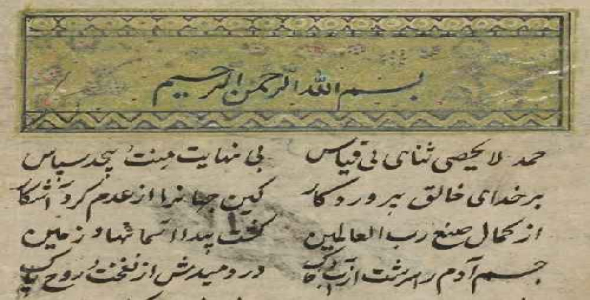 بسم الله الرحمن الرحیم
حمد لا یحصی ثنای بی قیاس بی نهایت منت بیحد سپاس
بر خدای خالق پروردکار کین جهانرا از عدم کرد آشکار
از کمال صنع رب العالمین کشت پیدا آسمانها و زمین
جسم آدم را سرشت از آب خاک در دمیدش از نفخت روح پاک